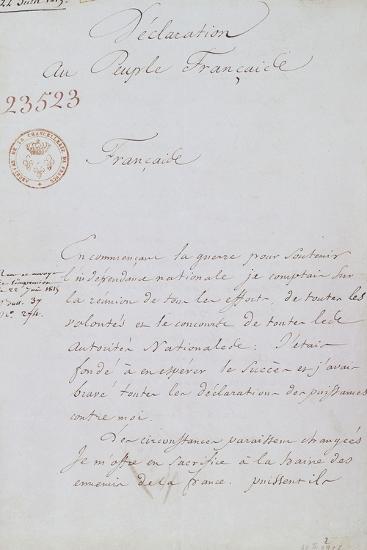 22 Juin 1815.
Déclaration
Au Peuple Français
23523
Français
En commençant la guerre pour soutenir
l'indépendance nationale je comptais sur
la réunion de tous les efforts, de toutes les
volontés et le concours de toutes les
autorités Nationales : J'étais
fondé à en espérer le succès et j'avais
bravé toutes les déclarations des puissances
contre moi.
22 Juin 1815
37
274.
Les circonstances paraissent changées
Je m'offre en sacrifice à la haine des
ennemis de la france. puissent ils